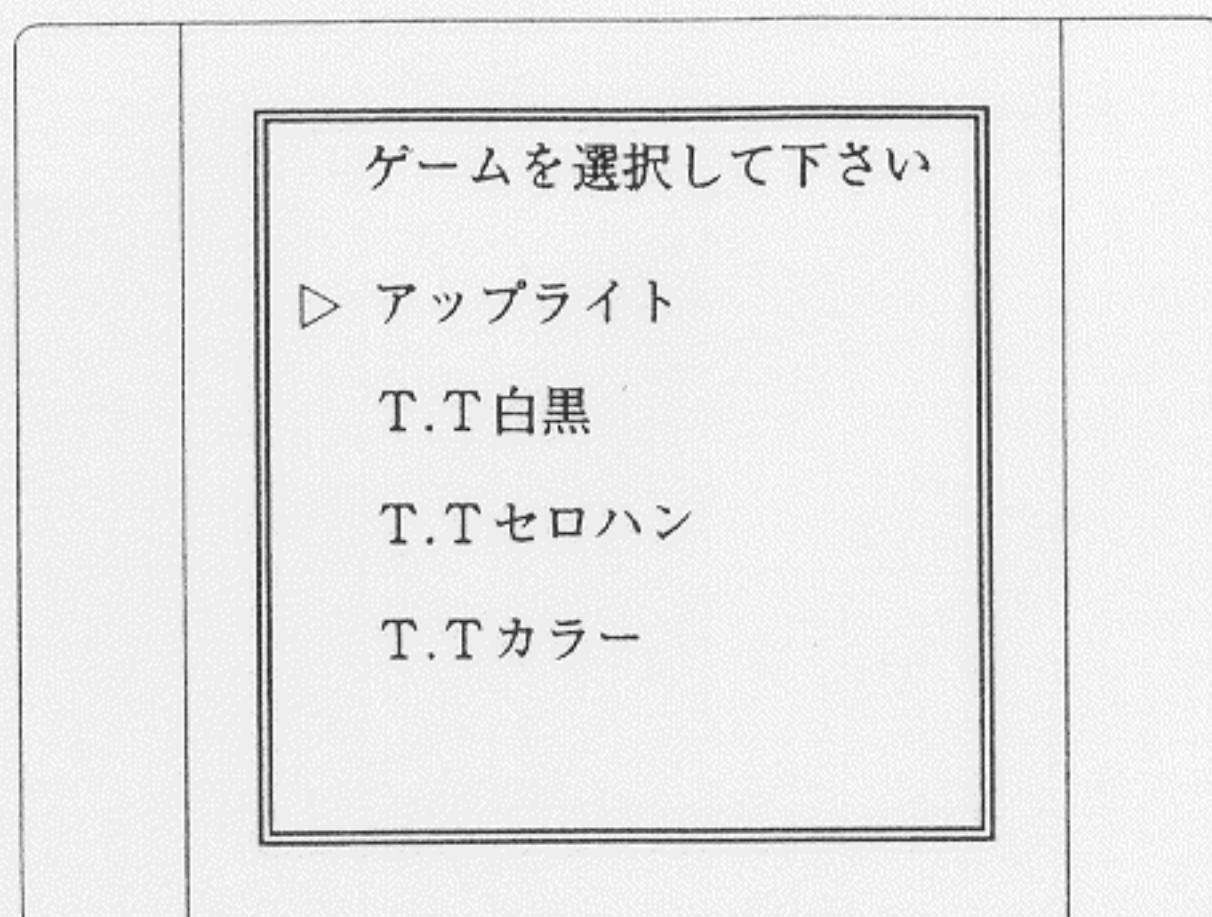 ゲームを選択して下さい
▷ アップライト
T.T白黒
T.Tセロハン
T.Tカラー